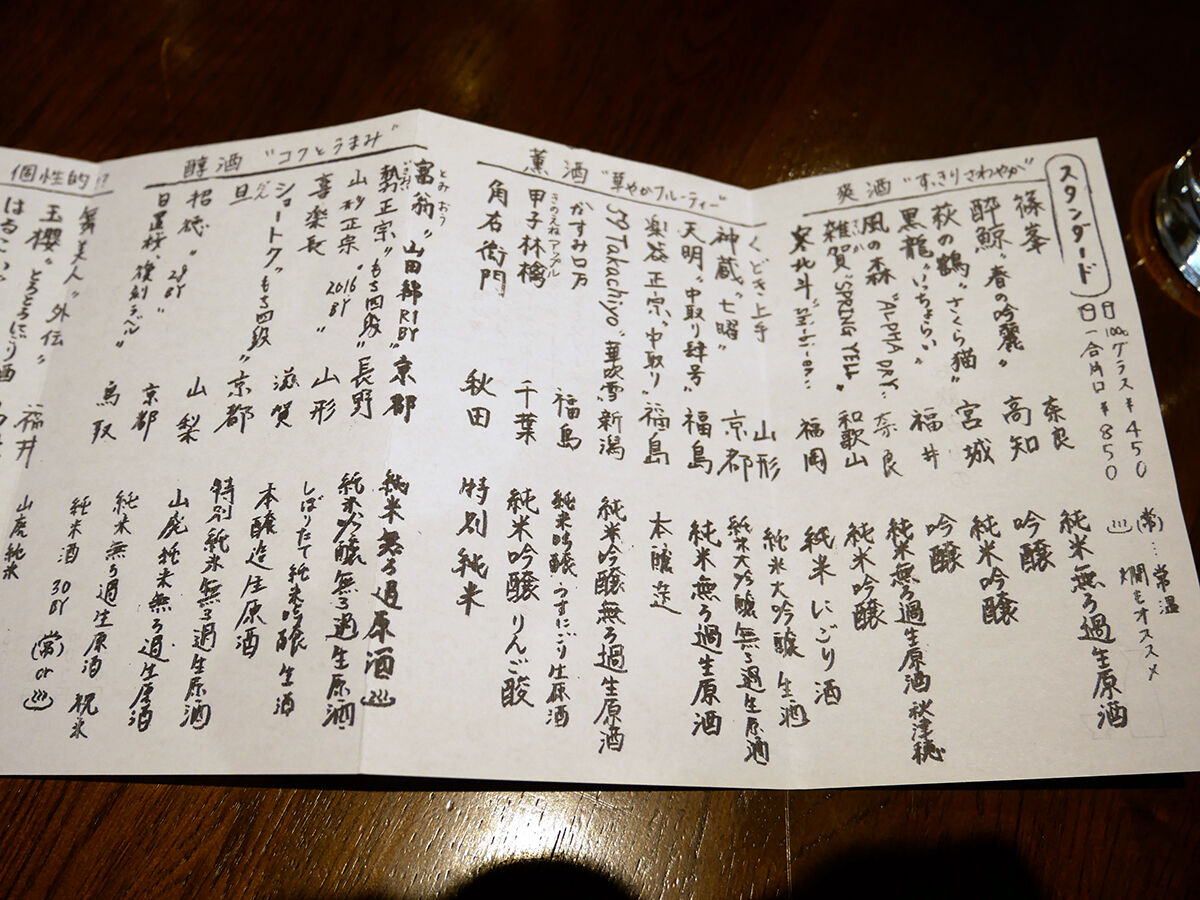 スタンダード
100cc グラス ¥450
一合片口 ¥850
(常)…常温
♨ 燗もオススメ
爽酒 "すっきりさわやか"
篠峯 奈良 純米無ろ過生原酒
酔鯨 "春の吟麗" 高知 吟醸
萩の鶴 "さくら猫" 宮城 純米吟醸
黒龍 "いっちょらい" 福井 吟醸
風の森 "ALPHA DAY" 奈良 純米無ろ過生原酒 秋津穂
雑賀 "SPRING YELL" 和歌山 純米吟醸
寒北斗 "shi-bi-en" 福岡 純米にごり酒
薫酒 "華やかフルーティー"
くどき上手 山形 純米大吟醸 生酒
神蔵 "七曜" 京都 純米大吟醸無ろ過生原酒
天明 "中取り肆号" 福島 純米無ろ過生原酒
楽谷正宗 "中取り" 福島 本醸造
59Takachiyo "華吹雪" 新潟 純米吟醸無ろ過生原酒
かすみロ万 福島 純米吟醸 うすにごり生原酒
甲子林檎 きのえねアップル 千葉 純米吟醸 りんご酸
角右衛門 秋田 特別純米
醇酒 "コクとうまみ"
富翁 とみおう "山田錦R1BY" 京都 純米無ろ過原酒 ♨
勢正宗 "もち四段" 長野 純米吟醸無ろ過生原酒
山形正宗 "2016BY" 山形 しぼりたて純米吟醸生酒
喜楽長 滋賀 本醸造生原酒
ショートク "もち四段" 京都 特別純米無ろ過生原酒
旦 山梨 山廃純米無ろ過生原酒
招徳 "29BY" 京都 純米無ろ過生原酒 祝米
日置桜 "復刻ラベル" 鳥取 純米酒 30BY (常) or ♨
個性的!?
舞美人 "外伝" 福井 山廃純米
玉櫻 "とろとろにごり酒"